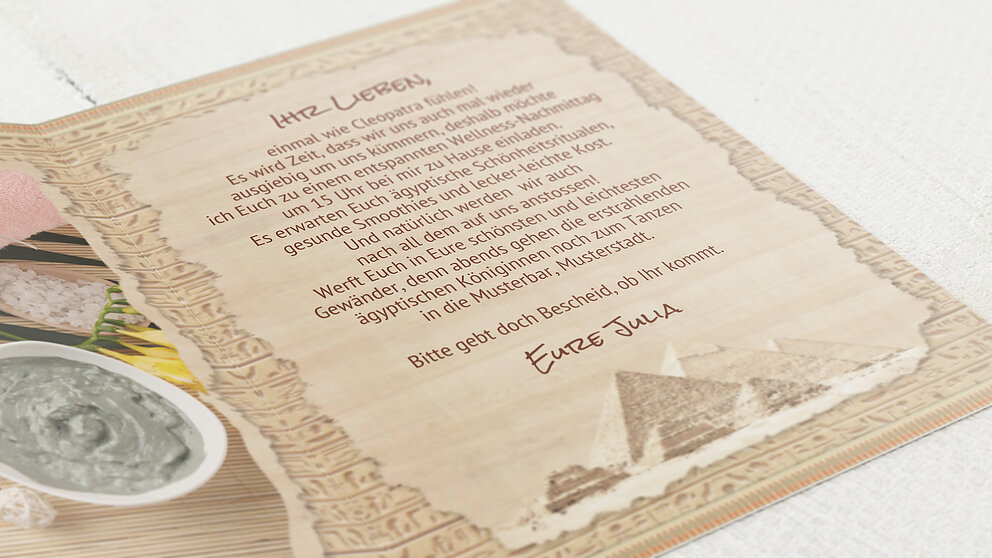 Ihr Lieben,
einmal wie Cleopatra fühlen!
Es wird Zeit, dass wir uns auch mal wieder
ausgiebig um uns kümmern, deshalb möchte
ich Euch zu einem entspannten Wellness-Nachmittag
um 15 Uhr bei mir zu Hause einladen.
Es erwarten Euch ägyptische Schönheitsritualen,
gesunde Smoothies und lecker-leichte Kost.
Und natürlich werden wir auch
nach all dem auf uns anstossen!
Werft Euch in Eure schönsten und leichtesten
Gewänder, denn abends gehen die erstrahlenden
ägyptischen Königinnen noch zum Tanzen
in die Musterbar, Musterstadt.
Bitte gebt doch Bescheid, ob Ihr kommt.
Eure Julia